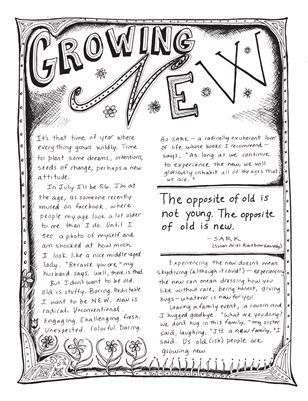 GROWING
NEW
It's that time of year where
everything grows wildly. Time
to plant some dreams, intentions,
seeds of change, perhaps a new
attitude.
In July I'll be 56. I'm at
the age, as someone recently
mused on facebook, where
people my age look a lot older
to me than I do. Until I
see a photo of myself and
am shocked at how much
I look like a nice middle aged
lady. "Because you are," my
husband says. Well, there is that.
But I don't want to be old.
Old is stuffy. Boring. Predictable.
I want to be NEW. New is
radical. Unconventional.
Engaging. Challenging. Fresh.
Unexpected. Colorful. Daring.
As SARK - a radically exuberant lover
of life whose books I recommend -
says, "As long as we continue
to experience the new, we will
gloriously inhabit all of the ages that
we are."
The opposite of old is
not young. The opposite
of old is new.
- SARK
(Susan Ariel Rainbow Kennedy)
Experiencing the new doesn't mean
skydiving (although it could!) - experiencing
the new can mean dressing how you
like without care, being honest, giving
hugs - whatever is new for you.
Leaving a family event, a cousin and
I hugged goodbye. "What are you doing?
We don't hug in this family," my sister
said, laughing. "It's a new family," I
said. Us old (ish) people are
growing new.